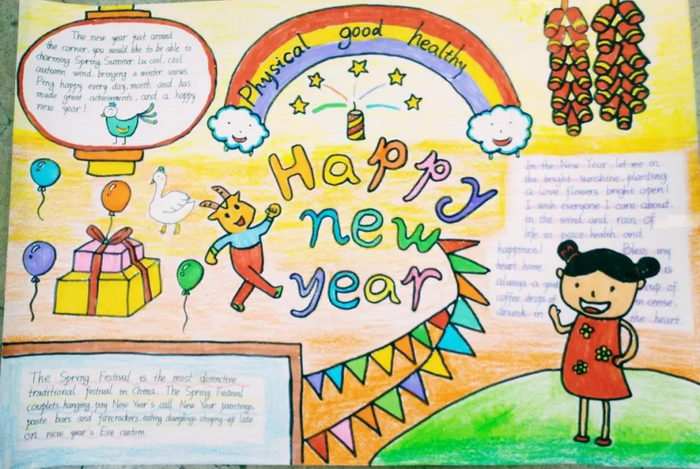 The new year just around
the corner, you would like to be able to
charming Spring, Summer cool, cool
autumn wind, bringing a winter
happy every day, month and has
made great achievements, and a happy
new year!
Physical good healthy
Happy
new
year
In the New Year, let me in
the bright sunshine, planting
a love flowers bright open!
I wish everyone I care about
in the wind and rain of
life is peace health and
happiness! Bless my
heart home a
always a cup of
coffee drops of
in the heart
The Spring Festival is the most distinctive
traditional festival in China. The Spring Festival
couplets, hanging, pay New Year's call, New Year paintings,
paste bars and firecrackers, eating dumplings, staying up late
on new year's Eve custom.